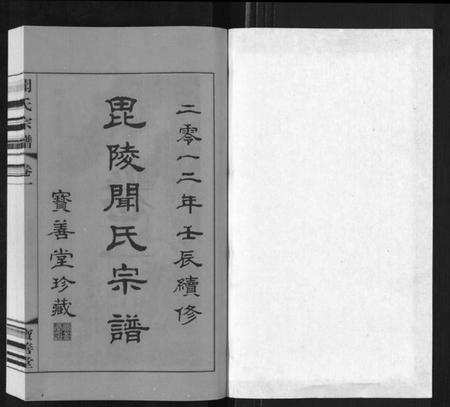 二零一二年壬辰續修
毘陵聞氏宗譜
寶善堂珍藏
聞氏宗譜
卷一
寶善堂